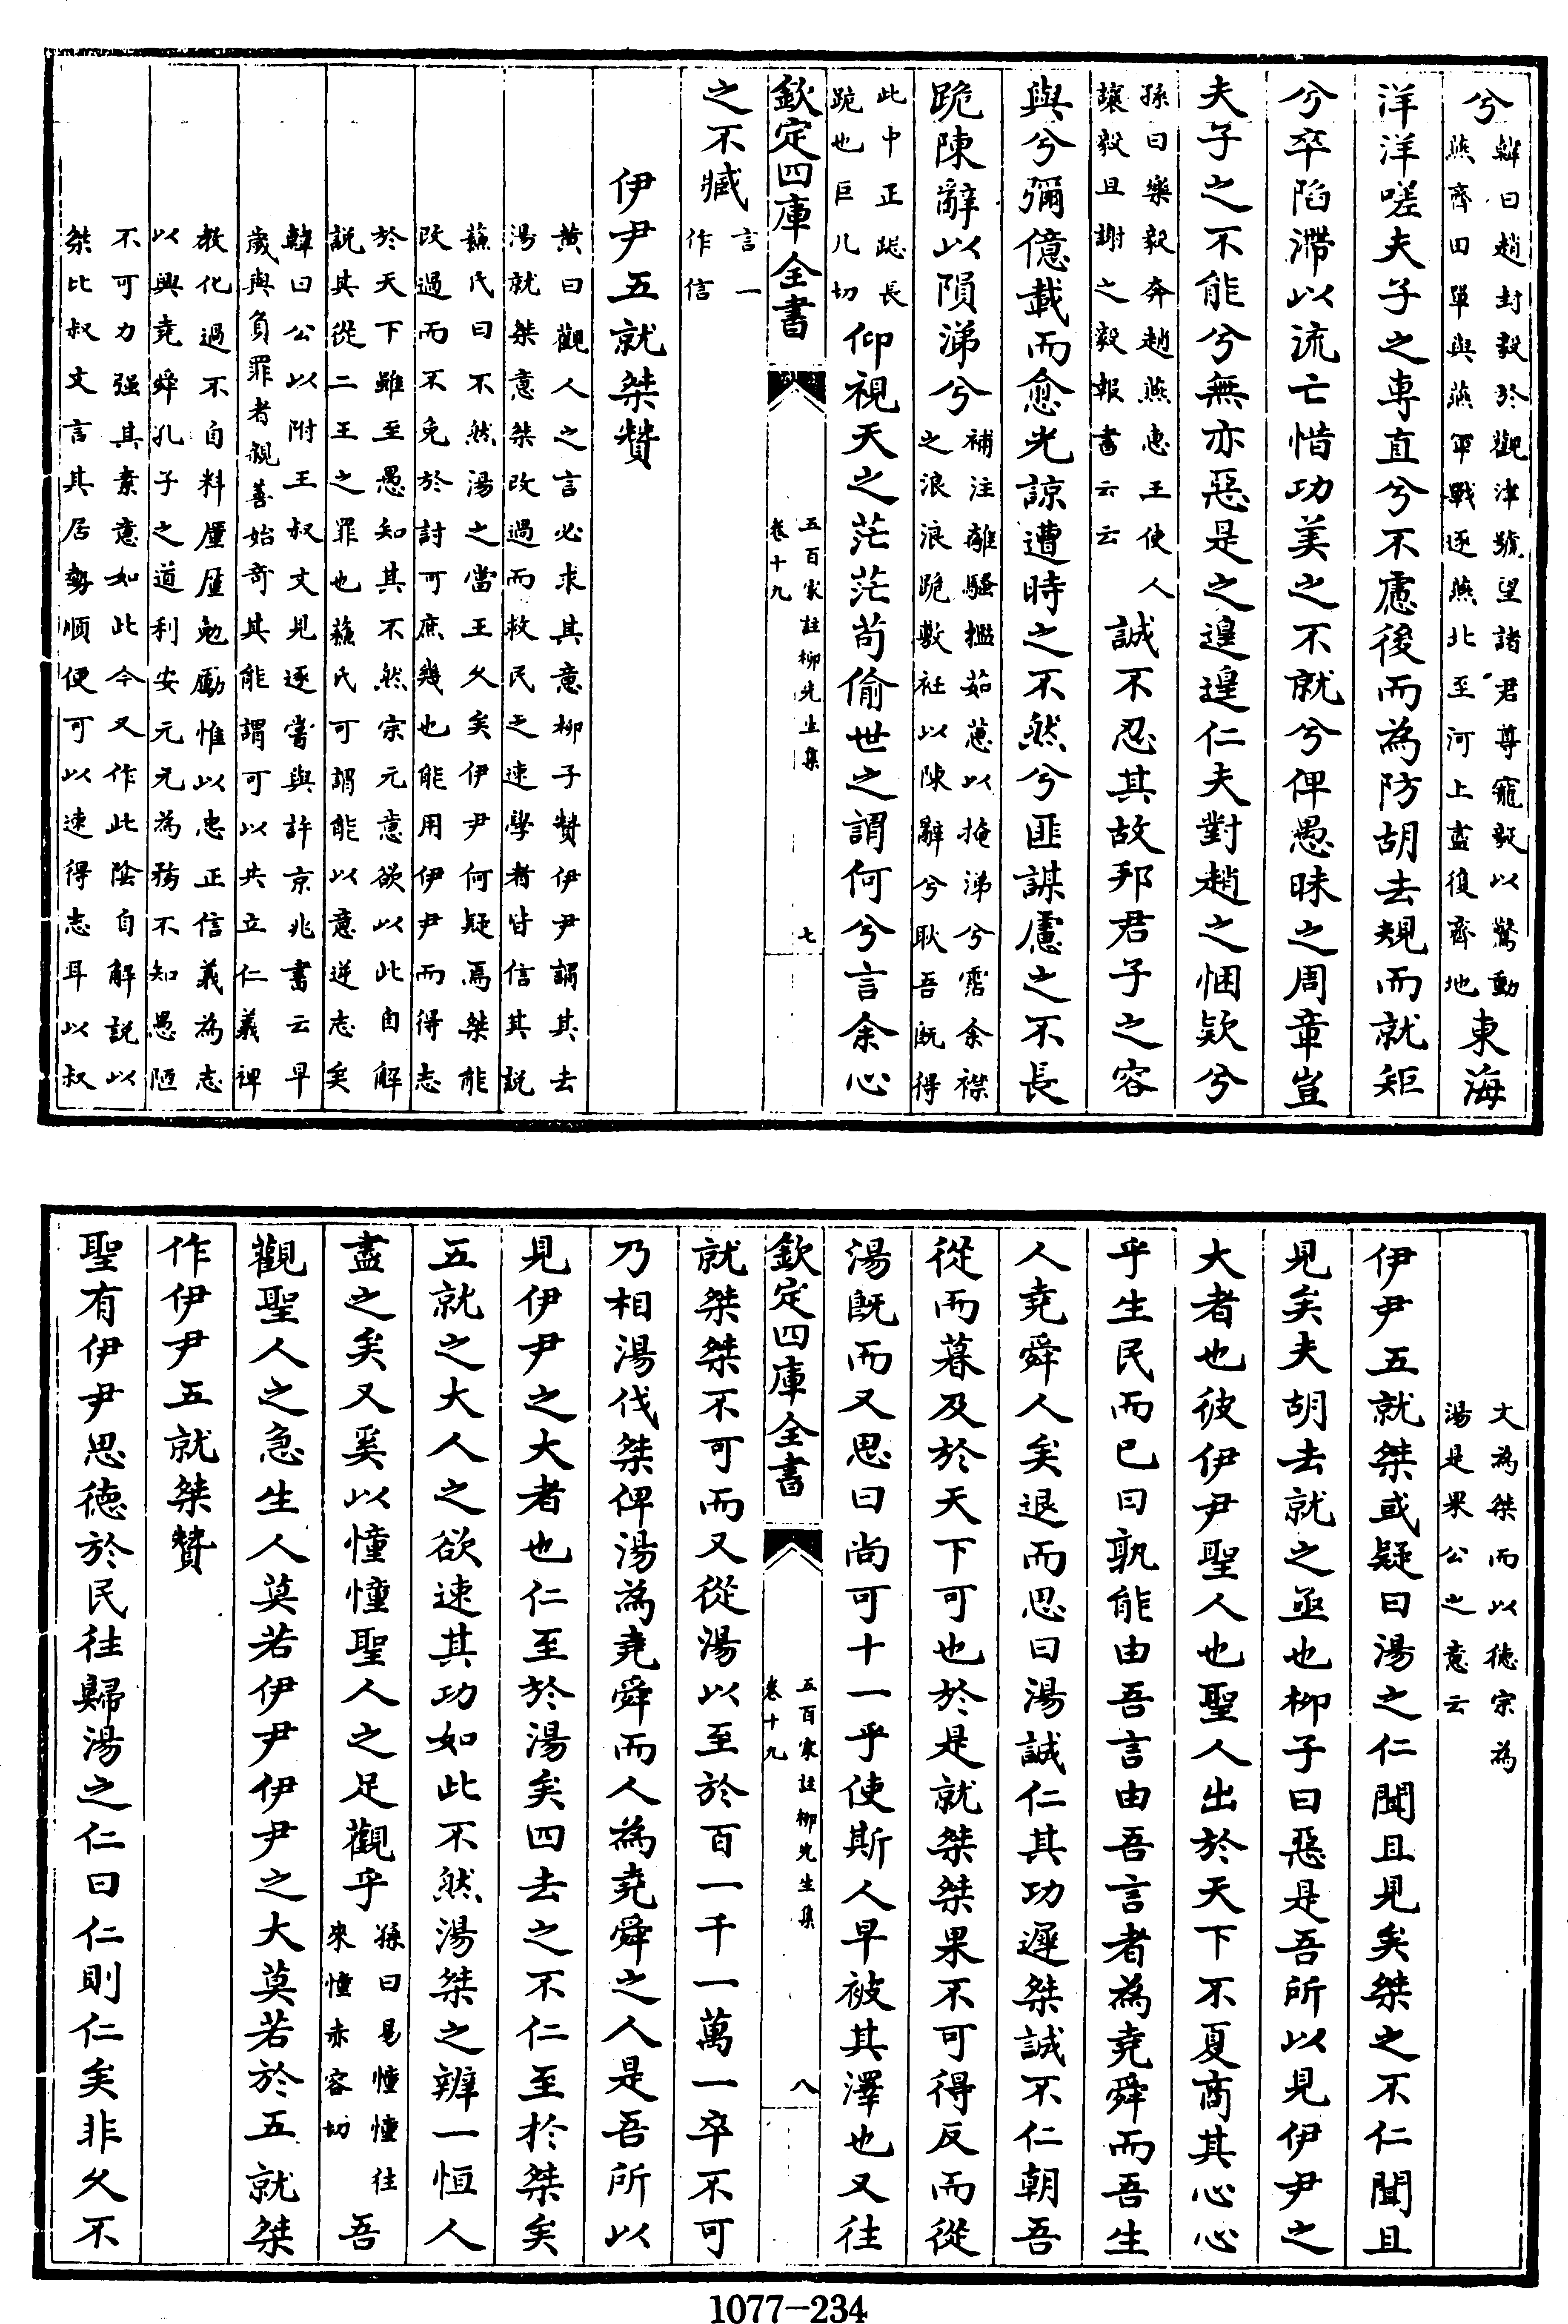 兮韓曰趙封毅於觀津號望諸君尊寵毅以驚動燕齊田單與燕軍戰逐燕北至河上盡復齊地東海
洋洋嗟夫子之専直兮不慮後而為防胡去規而就矩
兮卒陷滯以流亡惜功美之不就兮俾愚昧之周章豈
夫子之不能兮無亦惡是之遑遑仁夫對趙之悃欵兮
孫曰樂毅奔趙燕恵王使人讓毅且謝之毅報書云云誠不忍其故邦君子之容
與兮彌億載而愈光諒遭時之不然兮匪謀慮之不長
跪陳辭以隕涕兮補注離騷檻茹蕙以掩涕兮霑余襟之浪浪跪敷衽以陳辭兮耿吾既得
此中正跽長跪也巨几切仰視天之茫茫苟偷世之謂何兮言余心
欽定四庫全書 五百家註柳先生集卷十九 七
之不臧言一作信
伊尹五就桀贊
黄曰觀人之言必求其意柳子贊伊尹謂其去湯就桀意桀改過而救民之速學者皆信其説
蘇氏曰不然湯之當王久矣伊尹何疑焉桀能改過而不免於討可庶幾也能用伊尹而得志
於天下雖至愚知其不然宗元意欲以此自解説其從二王之罪也蘇氏可謂能以意逆志矣
韓曰公以附王叔文見逐嘗與許京兆書云早歳與負罪者親善始竒其能謂可以共立仁義裨
教化過不自料厪厪勉勵惟以忠正信義為志以興堯舜孔子之道利安元元為務不知愚陋
不可力强其素意如此今又作此隂自解説以桀比叔文言其居勢順便可以速得志耳以叔
文為桀而以徳宗為湯是果公之意云
伊尹五就桀或疑曰湯之仁聞且見矣桀之不仁聞且
見矣夫胡去就之亟也柳子曰惡是吾所以見伊尹之
大者也彼伊尹聖人也聖人出於天下不夏商其心心
乎生民而已曰孰能由吾言由吾言者為堯舜而吾生
人堯舜人矣退而思曰湯誠仁其功遲桀誠不仁朝吾
從而暮及於天下可也於是就桀桀果不可得反而從
湯既而又思曰尚可十一乎使斯人早被其澤也又往
欽定四庫全書 五百家註柳先生集卷十九 八
就桀桀不可而又從湯以至於百一千一萬一卒不可
乃相湯伐桀俾湯為堯舜而人為堯舜之人是吾所以
見伊尹之大者也仁至於湯矣四去之不仁至於桀矣
五就之大人之欲速其功如此不然湯桀之辨一恒人
盡之矣又奚以憧憧聖人之足觀乎孫曰易憧憧往來憧赤容切吾
觀聖人之急生人莫若伊尹伊尹之大莫若於五就桀
作伊尹五就桀贊
聖有伊尹思徳於民往歸湯之仁曰仁則仁矣非久不
1077-234